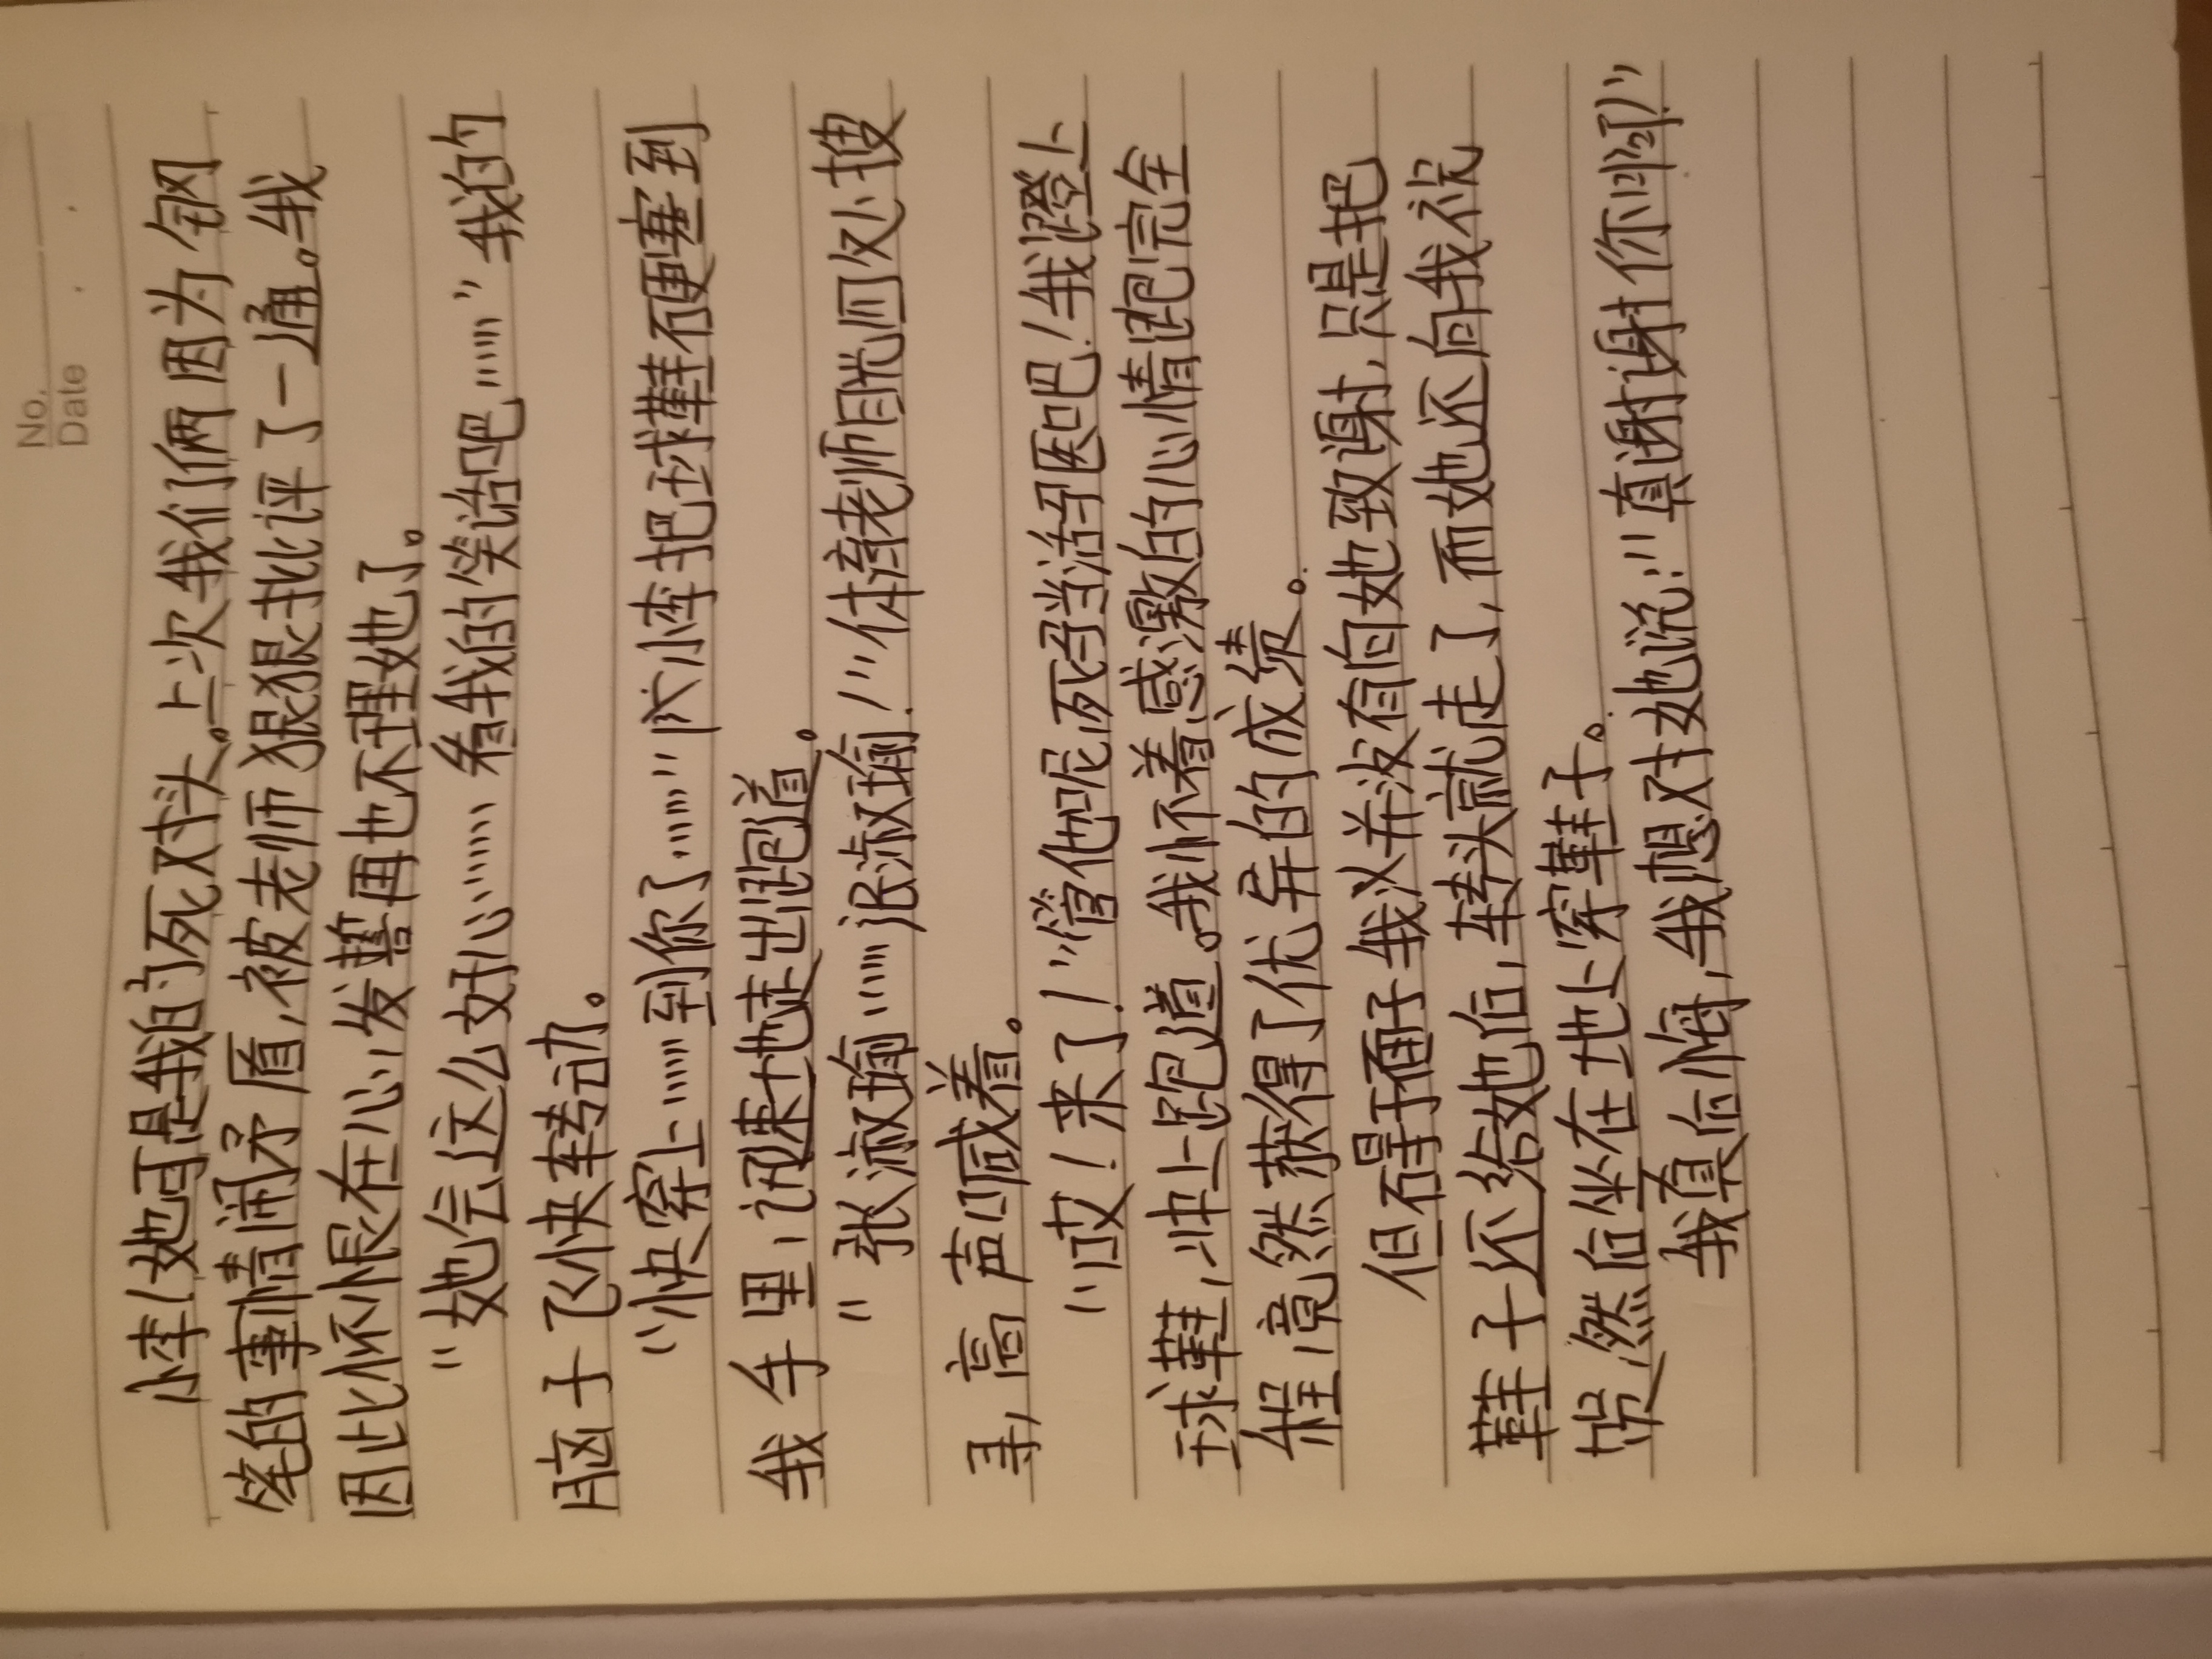 No.
Date
小李!她可是我的死对头。上次我们俩因为钢
笔的事情闹矛盾,被老师狠狠批评了一通。我
因此怀恨在心,发誓再也不理她了。
“她会这么好心……看我的笑话吧……”我的
脑子飞快转动。
“快穿上……到你了……”小李把球鞋硬塞到
我手里,迅速地走出跑道。
“张淑瑜……张淑瑜!”体育老师目光四处搜
寻,高声喊着。
“哎!来了!”管他呢,死马当活马医吧!我蹬上
球鞋,冲上跑道。我怀着感激的心情跑完全
程,竟然获得了优异的成绩。
但碍于面子我并没有向她致谢,只是把
鞋子还给她后,转头就走了,而她还向我祝
贺,然后坐在地上穿鞋子。
我真后悔,我想对她说:“真谢谢你啊!”